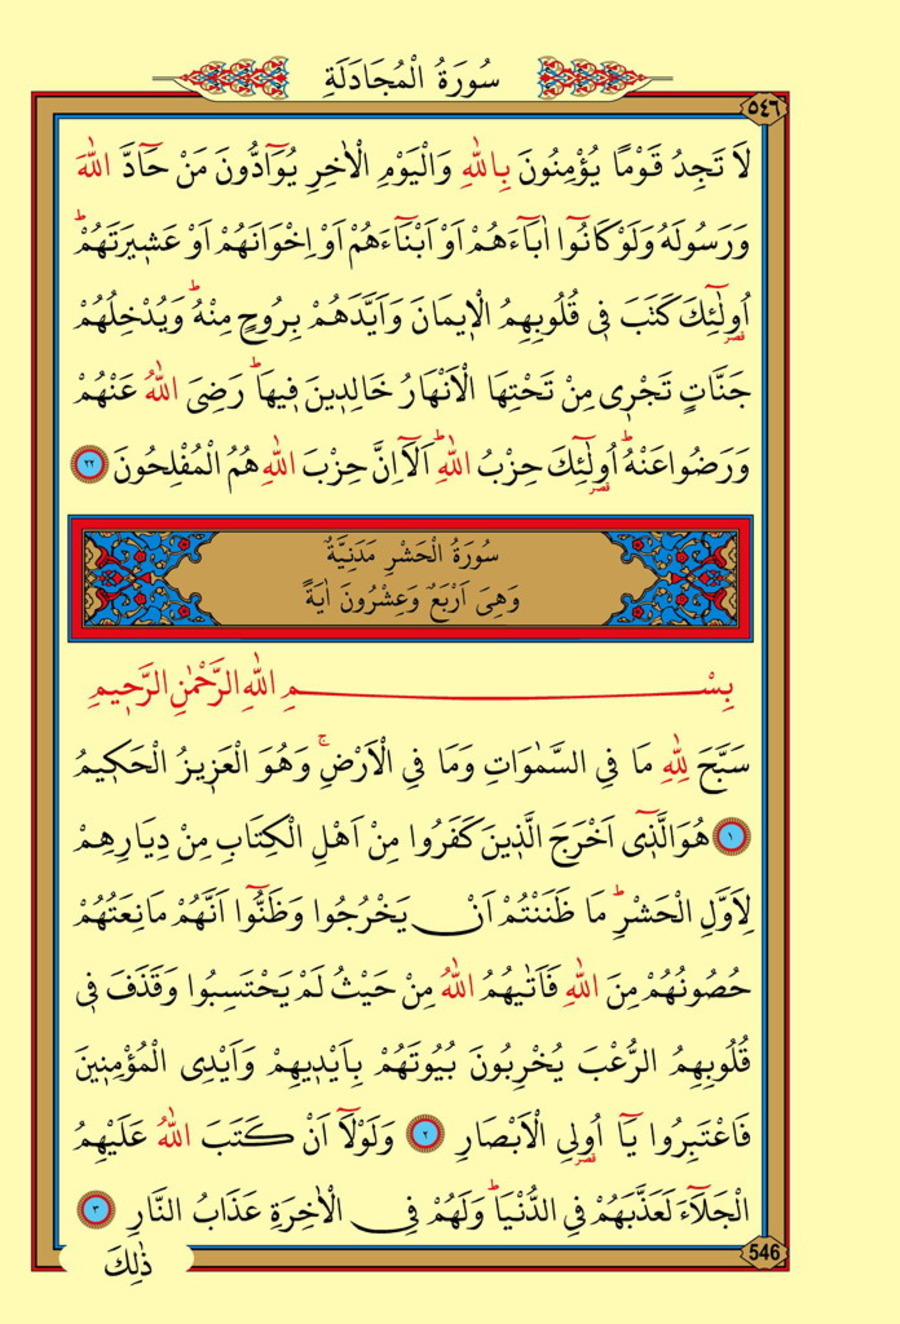 سُورَةُ الْمُجَادَلَةِ
٥٤٦
لَا تَجِدُ قَوْمًا يُؤْمِنُونَ بِاللّٰهِ وَالْيَوْمِ الْاٰخِرِ يُوَٓادُّونَ مَنْ حَٓادَّ اللّٰهَ
وَرَسُولَهُ وَلَوْ كَانُٓوا اٰبَٓاءَهُمْ اَوْ اَبْنَٓاءَهُمْ اَوْ اِخْوَانَهُمْ اَوْ عَشٖيرَتَهُمْؕ
اُو۬لٰٓئِكَ كَتَبَ فٖي قُلُوبِهِمُ الْاٖيمَانَ وَاَيَّدَهُمْ بِرُوحٍ مِنْهُؕ وَيُدْخِلُهُمْ
قصر
جَنَّاتٍ تَجْرٖي مِنْ تَحْتِهَا الْاَنْهَارُ خَالِدٖينَ فٖيهَاؕ رَضِيَ اللّٰهُ عَنْهُمْ
وَرَضُوا عَنْهُؕ اُو۬لٰٓئِكَ حِزْبُ اللّٰهِؕ اَلَٓا اِنَّ حِزْبَ اللّٰهِ هُمُ الْمُفْلِحُونَ ٢٢
قصر
سُورَةُ الْحَشْرِ مَدَنِيَّةٌ
وَهِيَ اَرْبَعٌ وَعِشْرُونَ اٰيَةً
بِسْمِ اللّٰهِ الرَّحْمٰنِ الرَّحٖيمِ
سَبَّحَ لِلّٰهِ مَا فِي السَّمٰوَاتِ وَمَا فِي الْاَرْضِۚ وَهُوَ الْعَزٖيزُ الْحَكٖيمُ
١ هُوَ الَّذٖٓي اَخْرَجَ الَّذٖينَ كَفَرُوا مِنْ اَهْلِ الْكِتَابِ مِنْ دِيَارِهِمْ
لِاَوَّلِ الْحَشْرِؕ مَا ظَنَنْتُمْ اَنْ يَخْرُجُوا وَظَنُّٓوا اَنَّهُمْ مَانِعَتُهُمْ
حُصُونُهُمْ مِنَ اللّٰهِ فَاَتٰيهُمُ اللّٰهُ مِنْ حَيْثُ لَمْ يَحْتَسِبُوا وَقَذَفَ فٖي
قُلُوبِهِمُ الرُّعْبَ يُخْرِبُونَ بُيُوتَهُمْ بِاَيْدٖيهِمْ وَاَيْدِي الْمُؤْمِنٖينَ
فَاعْتَبِرُوا يَٓا اُو۬لِي الْاَبْصَارِ ٢ وَلَوْلَٓا اَنْ كَتَبَ اللّٰهُ عَلَيْهِمُ
قصر
الْجَلَٓاءَ لَعَذَّبَهُمْ فِي الدُّنْيَاؕ وَلَهُمْ فِي الْاٰخِرَةِ عَذَابُ النَّارِ ٣
546
ذٰلِكَ